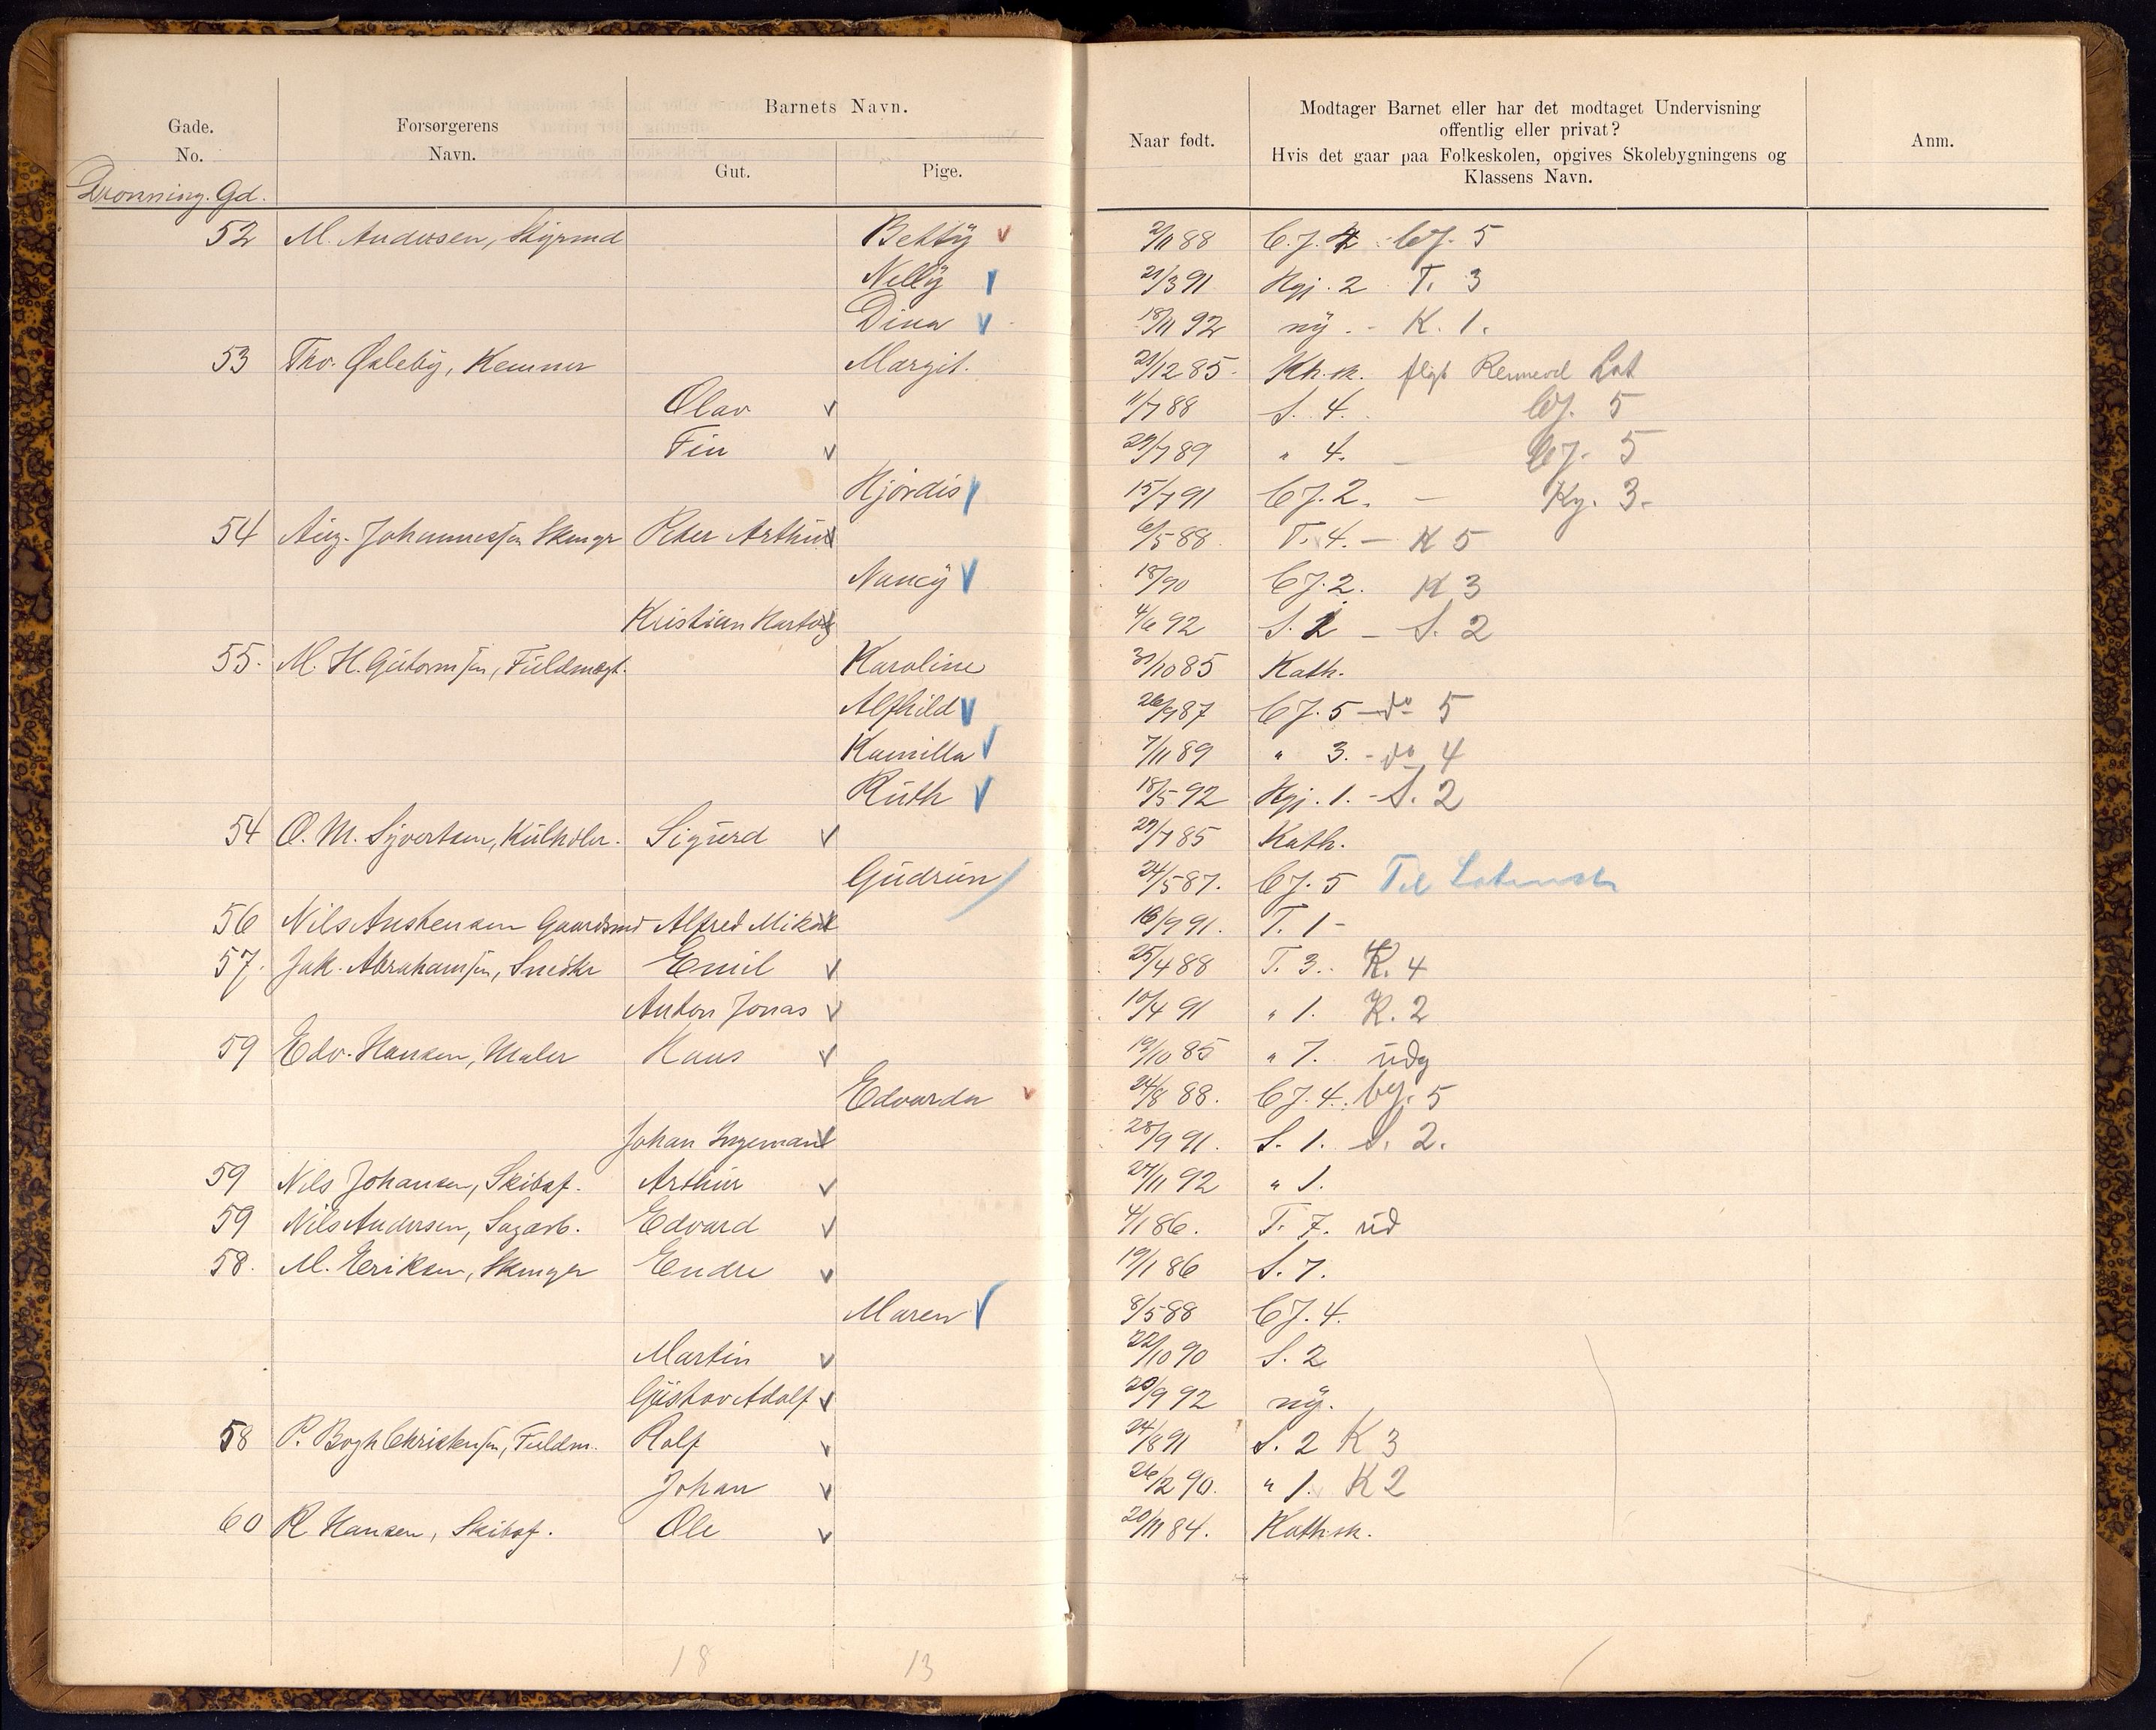 Gade. No. Forsørgerens Navn. Barnets Navn. Gut. Pige. Naar født. Modtager Barnet eller har det modtaget Undervisning offentlig eller privat? Hvis det gaar paa Folkeskolen, opgives Skolebygningens og Klassens Navn. Anm.
Dronning. Gd.
52 M. Andersen, Styrmd Betty 2/11 88 C.J. 4 CJ. 5
Nelly 21/3 91 Kgj. 2 T. 3
Dina 18/11 92 ny. - K. 1.
53 Thv. Øsleby, Kemner Margit. 21/12 85. Kh.sk. flyt Lat
Olav 11/7 88 S. 4. CJ. 5
Fin 29/7 89 " 4. - CJ. 5
Hjördis 15/7 91 CJ. 2. - Kg. 3.
54 Aug. Johannessen Peter Arthur 6/5 88. T. 4. - K 5
Nancy 18/90 CJ. 2. K 3
Kristian Hartvig 4/6 92 S. 2 - S. 2
55. M. H. Gutormsen, Fuldmægt. Karoline 31/10 85 Kath.
Alfhild 26/9 87 CJ. 5 - do 5
Kamilla 7/11 89 " 3. - do 4
Ruth 18/5 92 Kgj. 1. - S. 2
54 O. M. Syvertsen, Kulholer. Sigurd 29/7 85 Kath.
Gudrun 24/5 87. CJ. 5 Til Latinsk
56 Nils Austensen Gaardsmd Alfred Mikal 16/9 91. T. 1 -
57. Jak. Abrahamsen, Snedkr Emil 25/4 88 T. 3. K. 4
Anton Jonas 10/4 91 " 1. K. 2
59 Edv. Hansen, Maler Hans 19/10 85 " 7. udg
Edvarda 24/8 88. CJ. 4. CJ. 5
Johan Ingeman 28/9 91. S. 1. S. 2.
59 Nils Johansen, Skibsf. Arthur 27/11 92 " 1.
59 Nils Andersen, Sagarb. Edvard 4/1 86. T. 7. ud
58. M. Eriksen, Endre 19/1 86 S. 7.
Maren 8/5 88 CJ. 4.
Martin 22/10 90 S. 2
Gustav Adolf 20/9 92 ny.
58 P. Bogh Christensen, Fuldm. Rolf 24/8 91 S. 2 K 3
Johan 26/2 90. " 1. K 2
60 R. Hansen, Skibsf. Ole 20/11 84. Kath.sk.
18 13